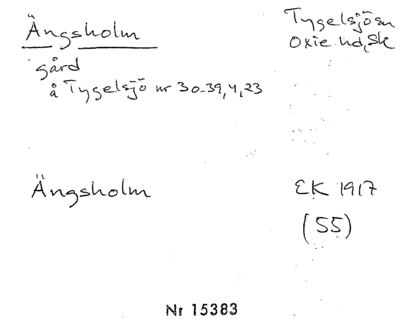 Ängsholm
Tygelsjö sn
Oxie hd, Sk
gård
å Tygelsjö nr 30-39, 4, 23
Ängsholm
EK 1917
(55)
Nr 15383